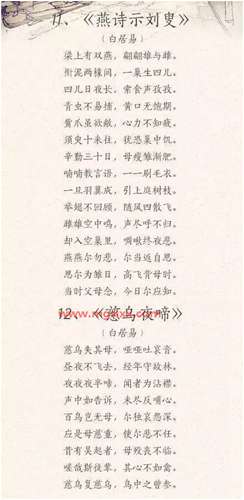 11、《燕诗示刘叟》
(白居易)
梁上有双燕，翩翩雄与雌。
衔泥两椽间，一巢生四儿。
四儿日夜长，索食声孜孜。
青虫不易捕，黄口无饱期。
觜爪虽欲敝，心力不知疲。
须臾十来往，犹恐巢中饥。
辛勤三十日，母瘦雏渐肥。
喃喃教言语，一一刷毛衣。
一旦羽翼成，引上庭树枝。
举翅不回顾，随风四散飞。
雌雄空中鸣，声尽呼不归。
却入空巢里，啁啾终夜悲。
燕燕尔勿悲，尔当返自思。
思尔为雏日，高飞背母时。
当时父母念，今日尔应知。
12、《慈乌夜啼》
(白居易)
慈乌失其母，哑哑吐哀音。
昼夜不飞去，经年守故林。
夜夜夜半啼，闻者为沾襟。
声中如告诉，未尽反哺心。
百鸟岂无母，尔独哀怨深。
应是母慈重，使尔悲不任。
昔有吴起者，母殁丧不临。
嗟哉斯徒辈，其心不如禽。
慈乌复慈乌，鸟中之曾参。